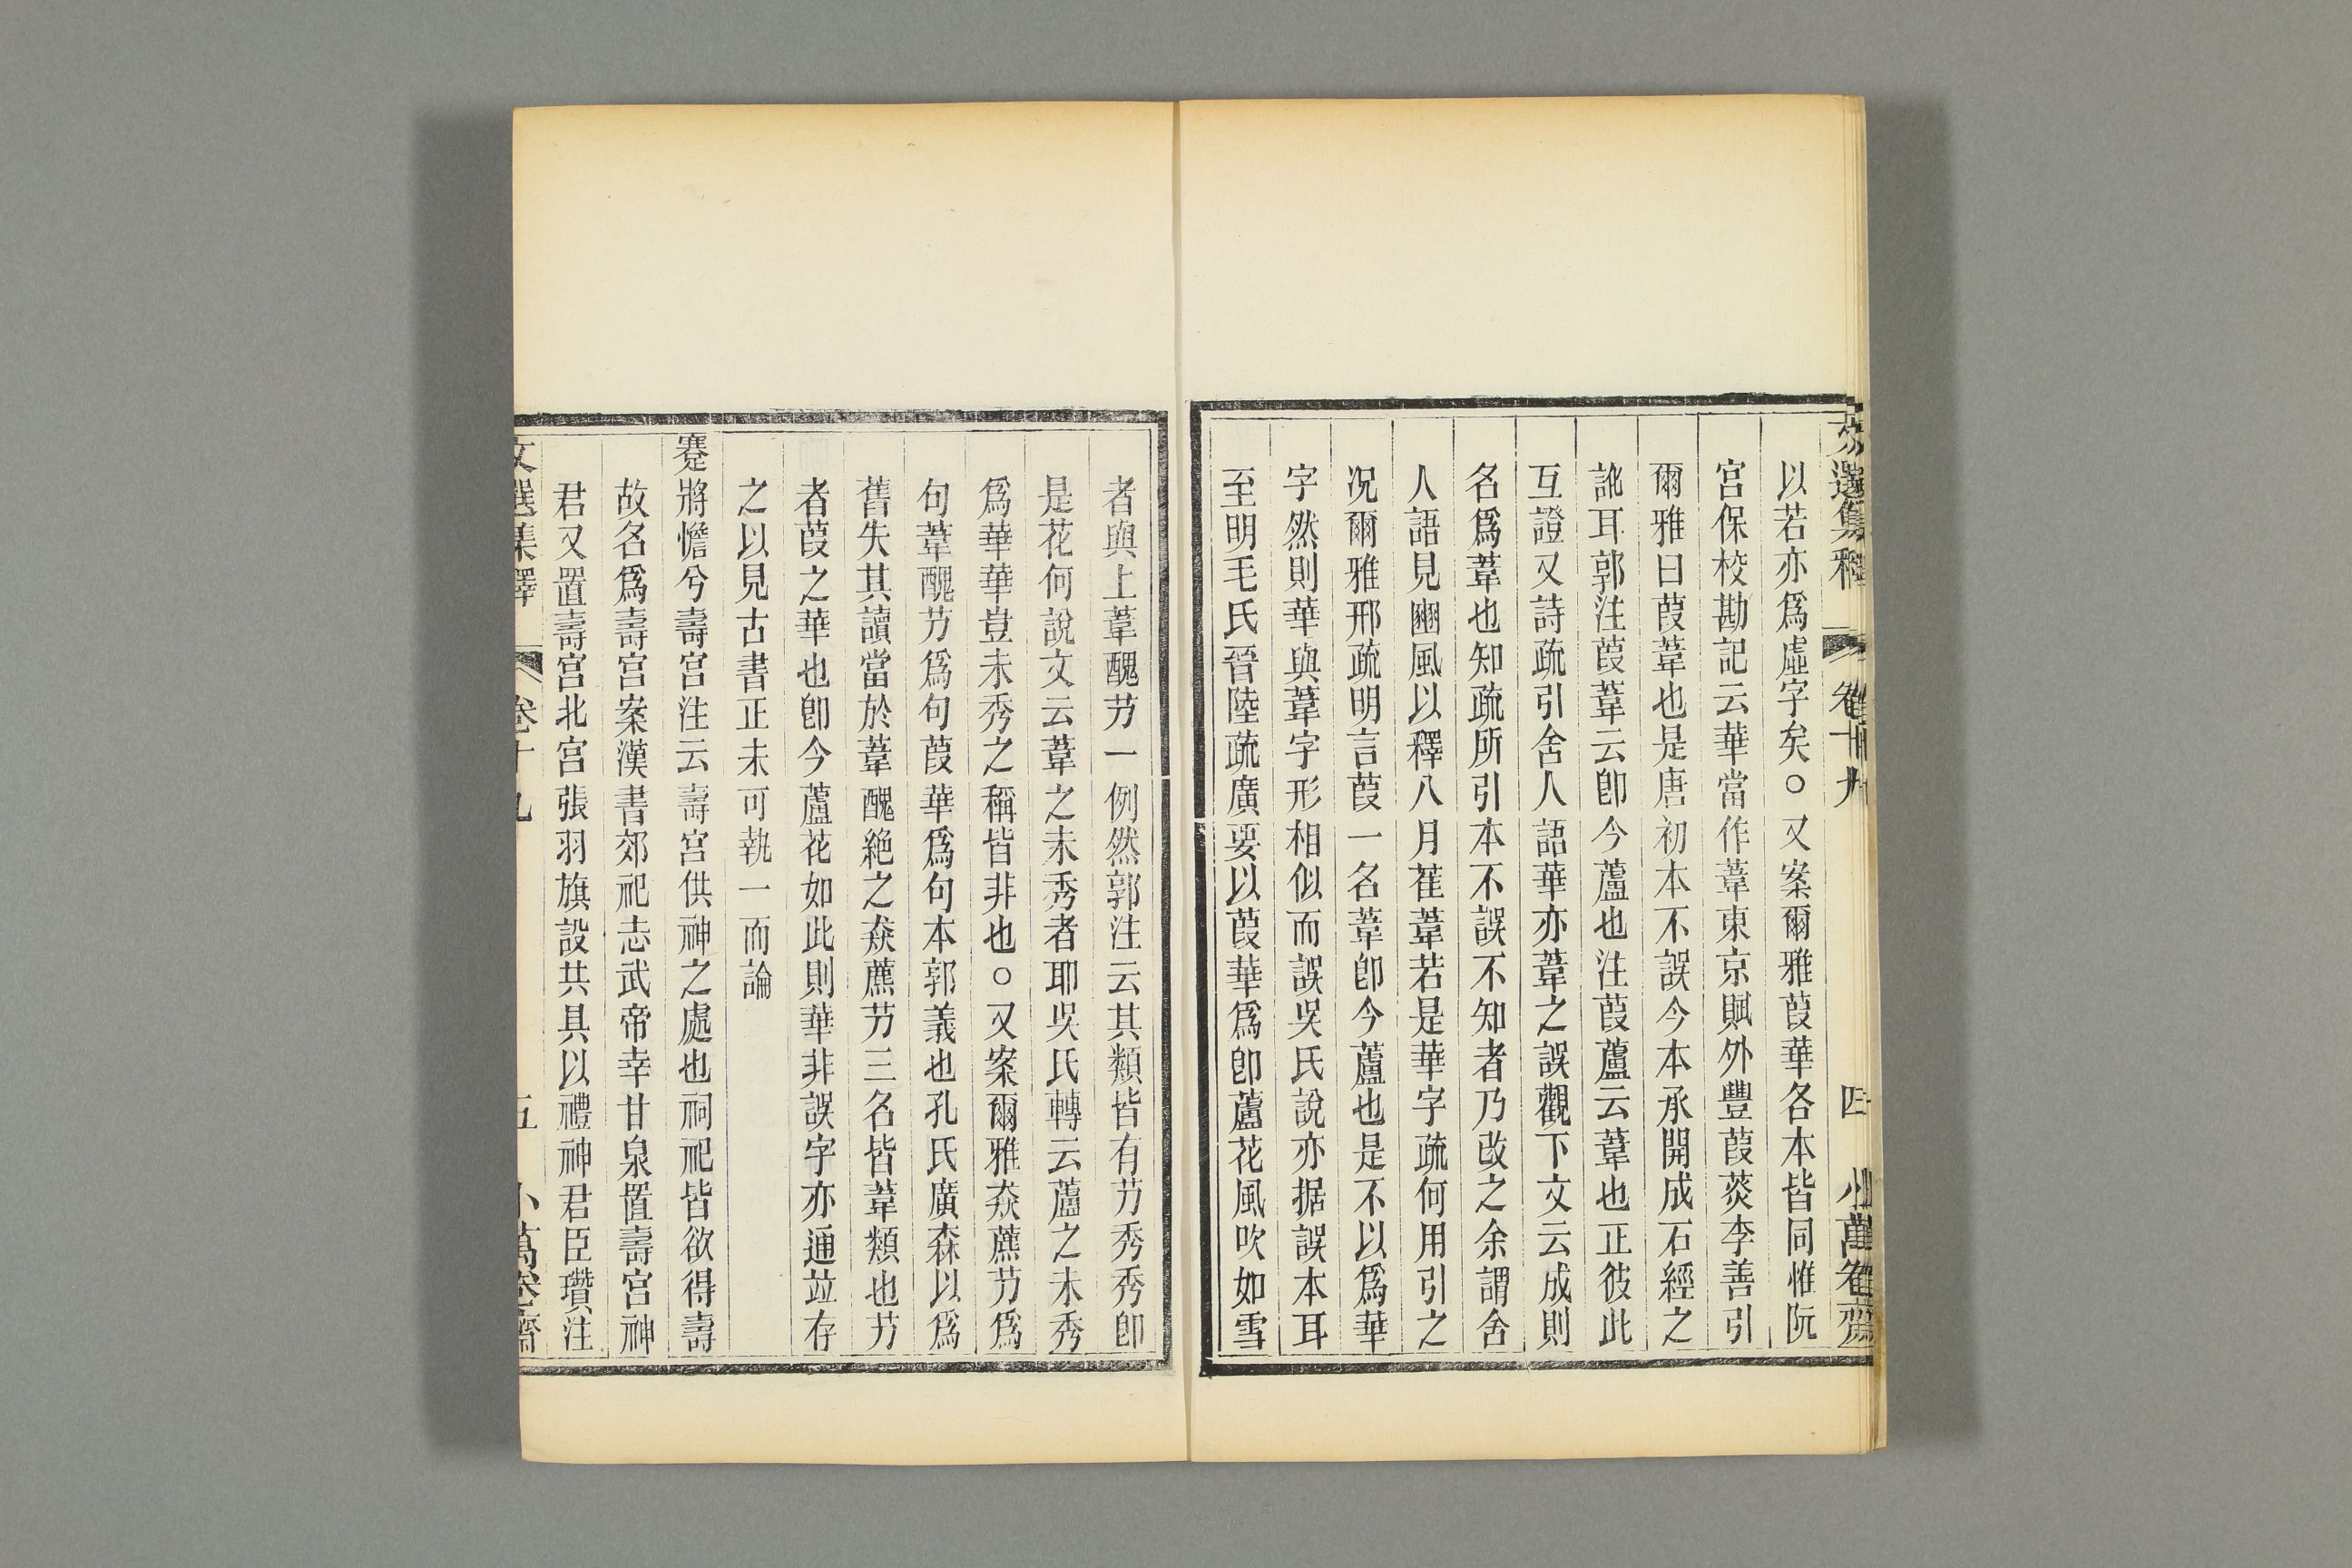 文選集釋 卷十九 四 小萬卷齋
以若亦爲虛字矣○又案爾雅葭華各本皆同惟阮
宮保校勘記云華當作葦東京賦外豐葭菼李善引
爾雅曰葭葦也是唐初本不誤今本承開成石經之
訛耳郭注葭葦云卽今蘆也注葭蘆云葦也正彼此
互證又詩疏引舍人語華亦葦之誤觀下文云成則
名爲葦也知疏所引本不誤不知者乃改之余謂舍
人語見豳風以釋八月萑葦若是華字疏何用引之
况爾雅邢疏明言葭一名葦卽今蘆也是不以爲華
字然則華與葦字形相似而誤吳氏說亦据誤本耳
至明毛氏晉陸疏廣要以葭華爲卽蘆花風吹如雪
者與上葦醜艿一例然郭注云其類皆有艿秀秀卽
是花何說文云葦之未秀者耶吳氏轉云蘆之未秀
爲華華豈未秀之稱皆非也○又案爾雅猋藨艿爲
句葦醜艿爲句葭華爲句本郭義也孔氏廣森以爲
舊失其讀當於葦醜絶之猋藨艿三名皆葦類也艿
者葭之華也卽今蘆花如此則華非誤字亦通竝存
之以見古書正未可執一而論
蹇將憺兮壽宮注云壽宮供神之處也祠祀皆欲得壽
故名爲壽宮案漢書郊祀志武帝幸甘泉置壽宮神
君又置壽宮北宮張羽旗設共具以禮神君臣瓚注
文選集釋 卷十九 五 小萬卷齋